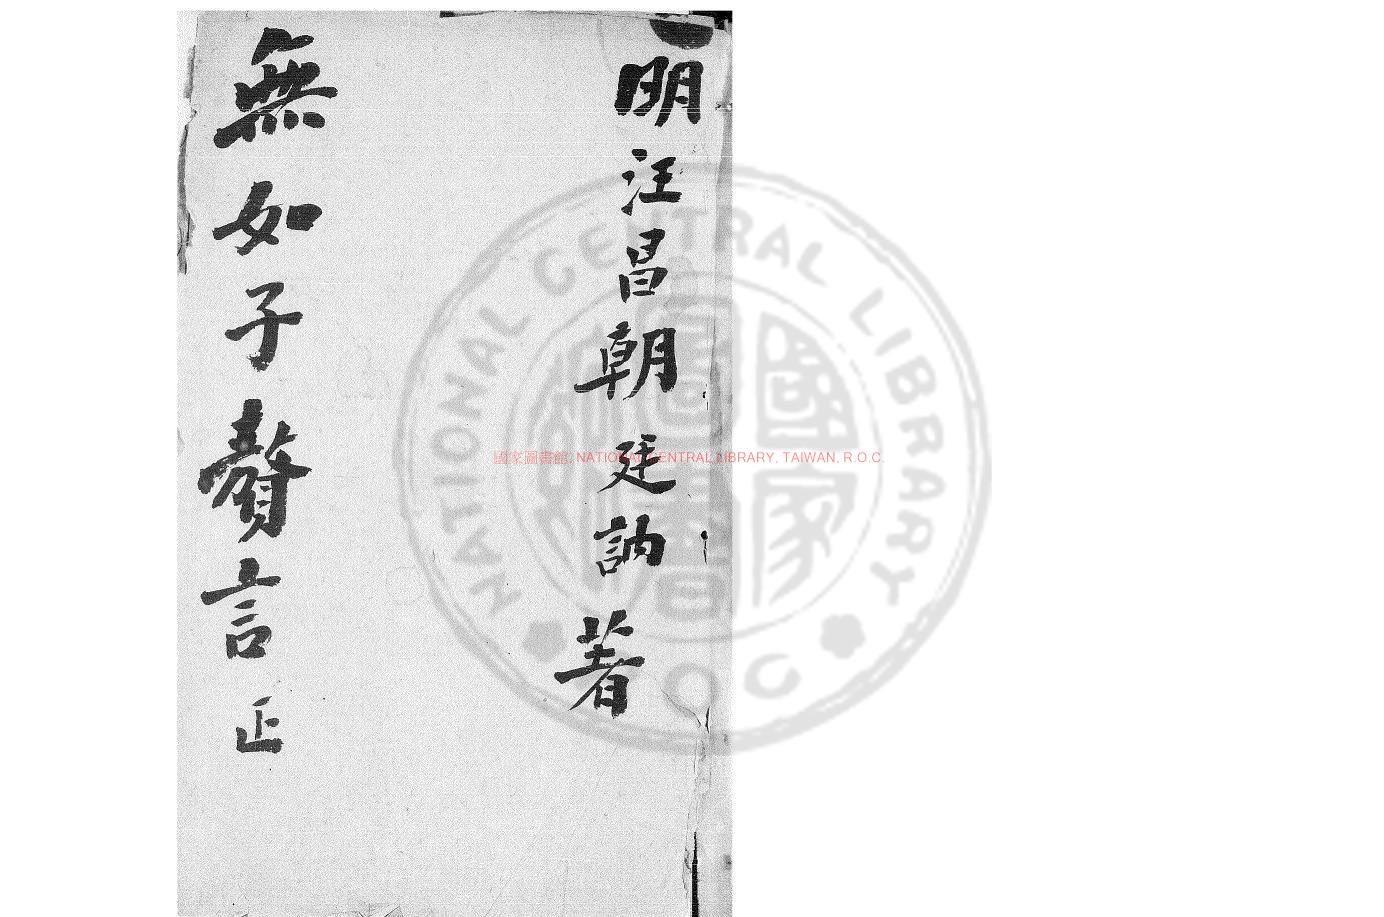 明汪昌朝廷訥著
無如子贅言 正
國家圖書館, NATIONAL CENTRAL LIBRARY, TAIWAN, R.O.C.
NATIONAL CENTRAL LIBRARY